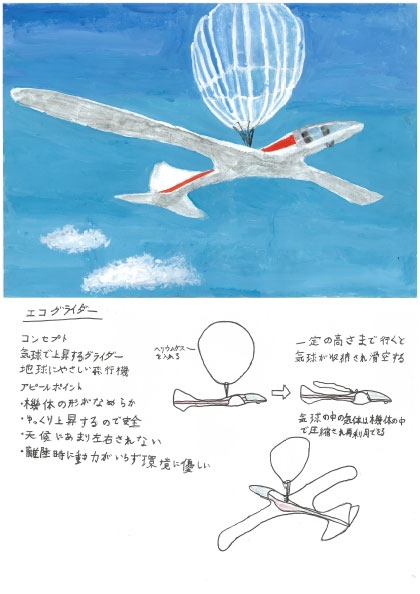 エコグライダー
コンセプト
気球で上昇するグライダー
地球にやさしい飛行機
アピールポイント
・機体の形がなめらか
・ゆっくり上昇するので安全
・天候にあまり左右されない
・離陸時に動力がいらず環境に優しい
ヘリウムガス
を入れる
一定の高さまで行くと
気球が収納され滑空する
気球の中の気体は機体の中
で圧縮され再利用できる